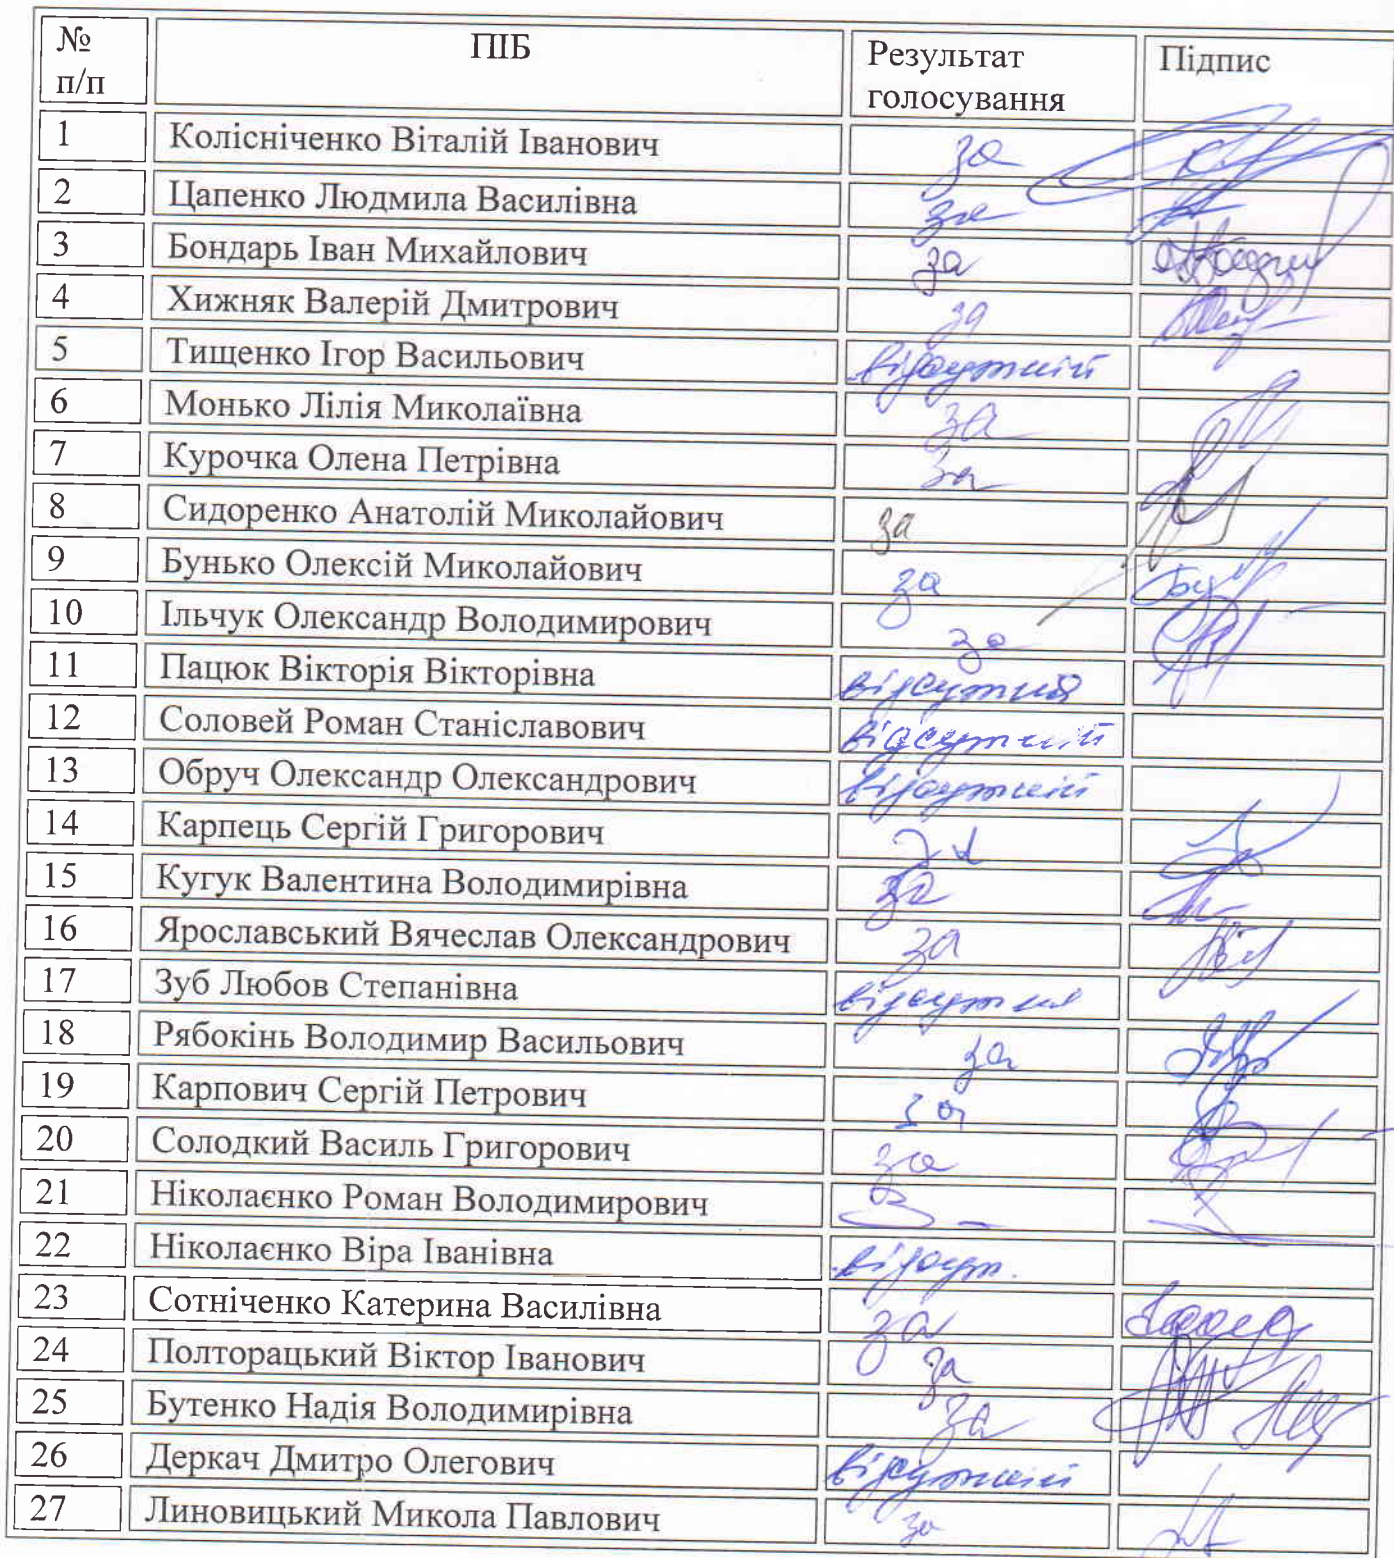 № п/п ПІБ Результат голосування Підпис
1 Колісніченко Віталій Іванович за
2 Цапенко Людмила Василівна за
3 Бондарь Іван Михайлович за
4 Хижняк Валерій Дмитрович за
5 Тищенко Ігор Васильович відсутній
6 Монько Лілія Миколаївна за
7 Курочка Олена Петрівна за
8 Сидоренко Анатолій Миколайович за
9 Бунько Олексій Миколайович за
10 Ільчук Олександр Володимирович за
11 Пацюк Вікторія Вікторівна відсутня
12 Соловей Роман Станіславович відсутній
13 Обруч Олександр Олександрович відсутній
14 Карпець Сергій Григорович за
15 Кугук Валентина Володимирівна за
16 Ярославський Вячеслав Олександрович за
17 Зуб Любов Степанівна відсутня
18 Рябокінь Володимир Васильович за
19 Карпович Сергій Петрович за
20 Солодкий Василь Григорович за
21 Ніколаєнко Роман Володимирович
22 Ніколаєнко Віра Іванівна відсут.
23 Сотніченко Катерина Василівна за
24 Полторацький Віктор Іванович за
25 Бутенко Надія Володимирівна за
26 Деркач Дмитро Олегович відсутній
27 Линовицький Микола Павлович за